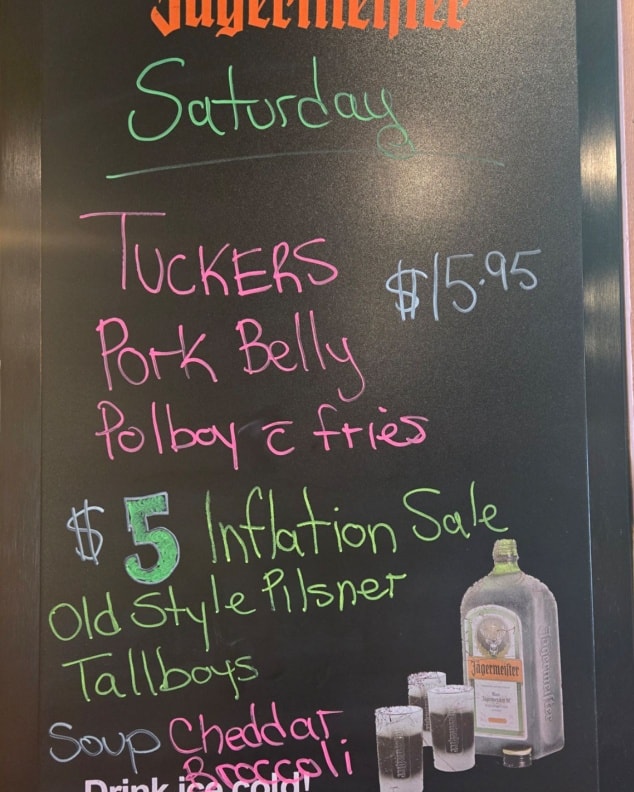 Jägermeister
Saturday
TUCKERS $15.95
Pork Belly
Polboy c̄ fries
$5 Inflation Sale
Old Style Pilsner
Tallboys
Soup Cheddar
Broccoli
Drink ice cold!
Jägermeister